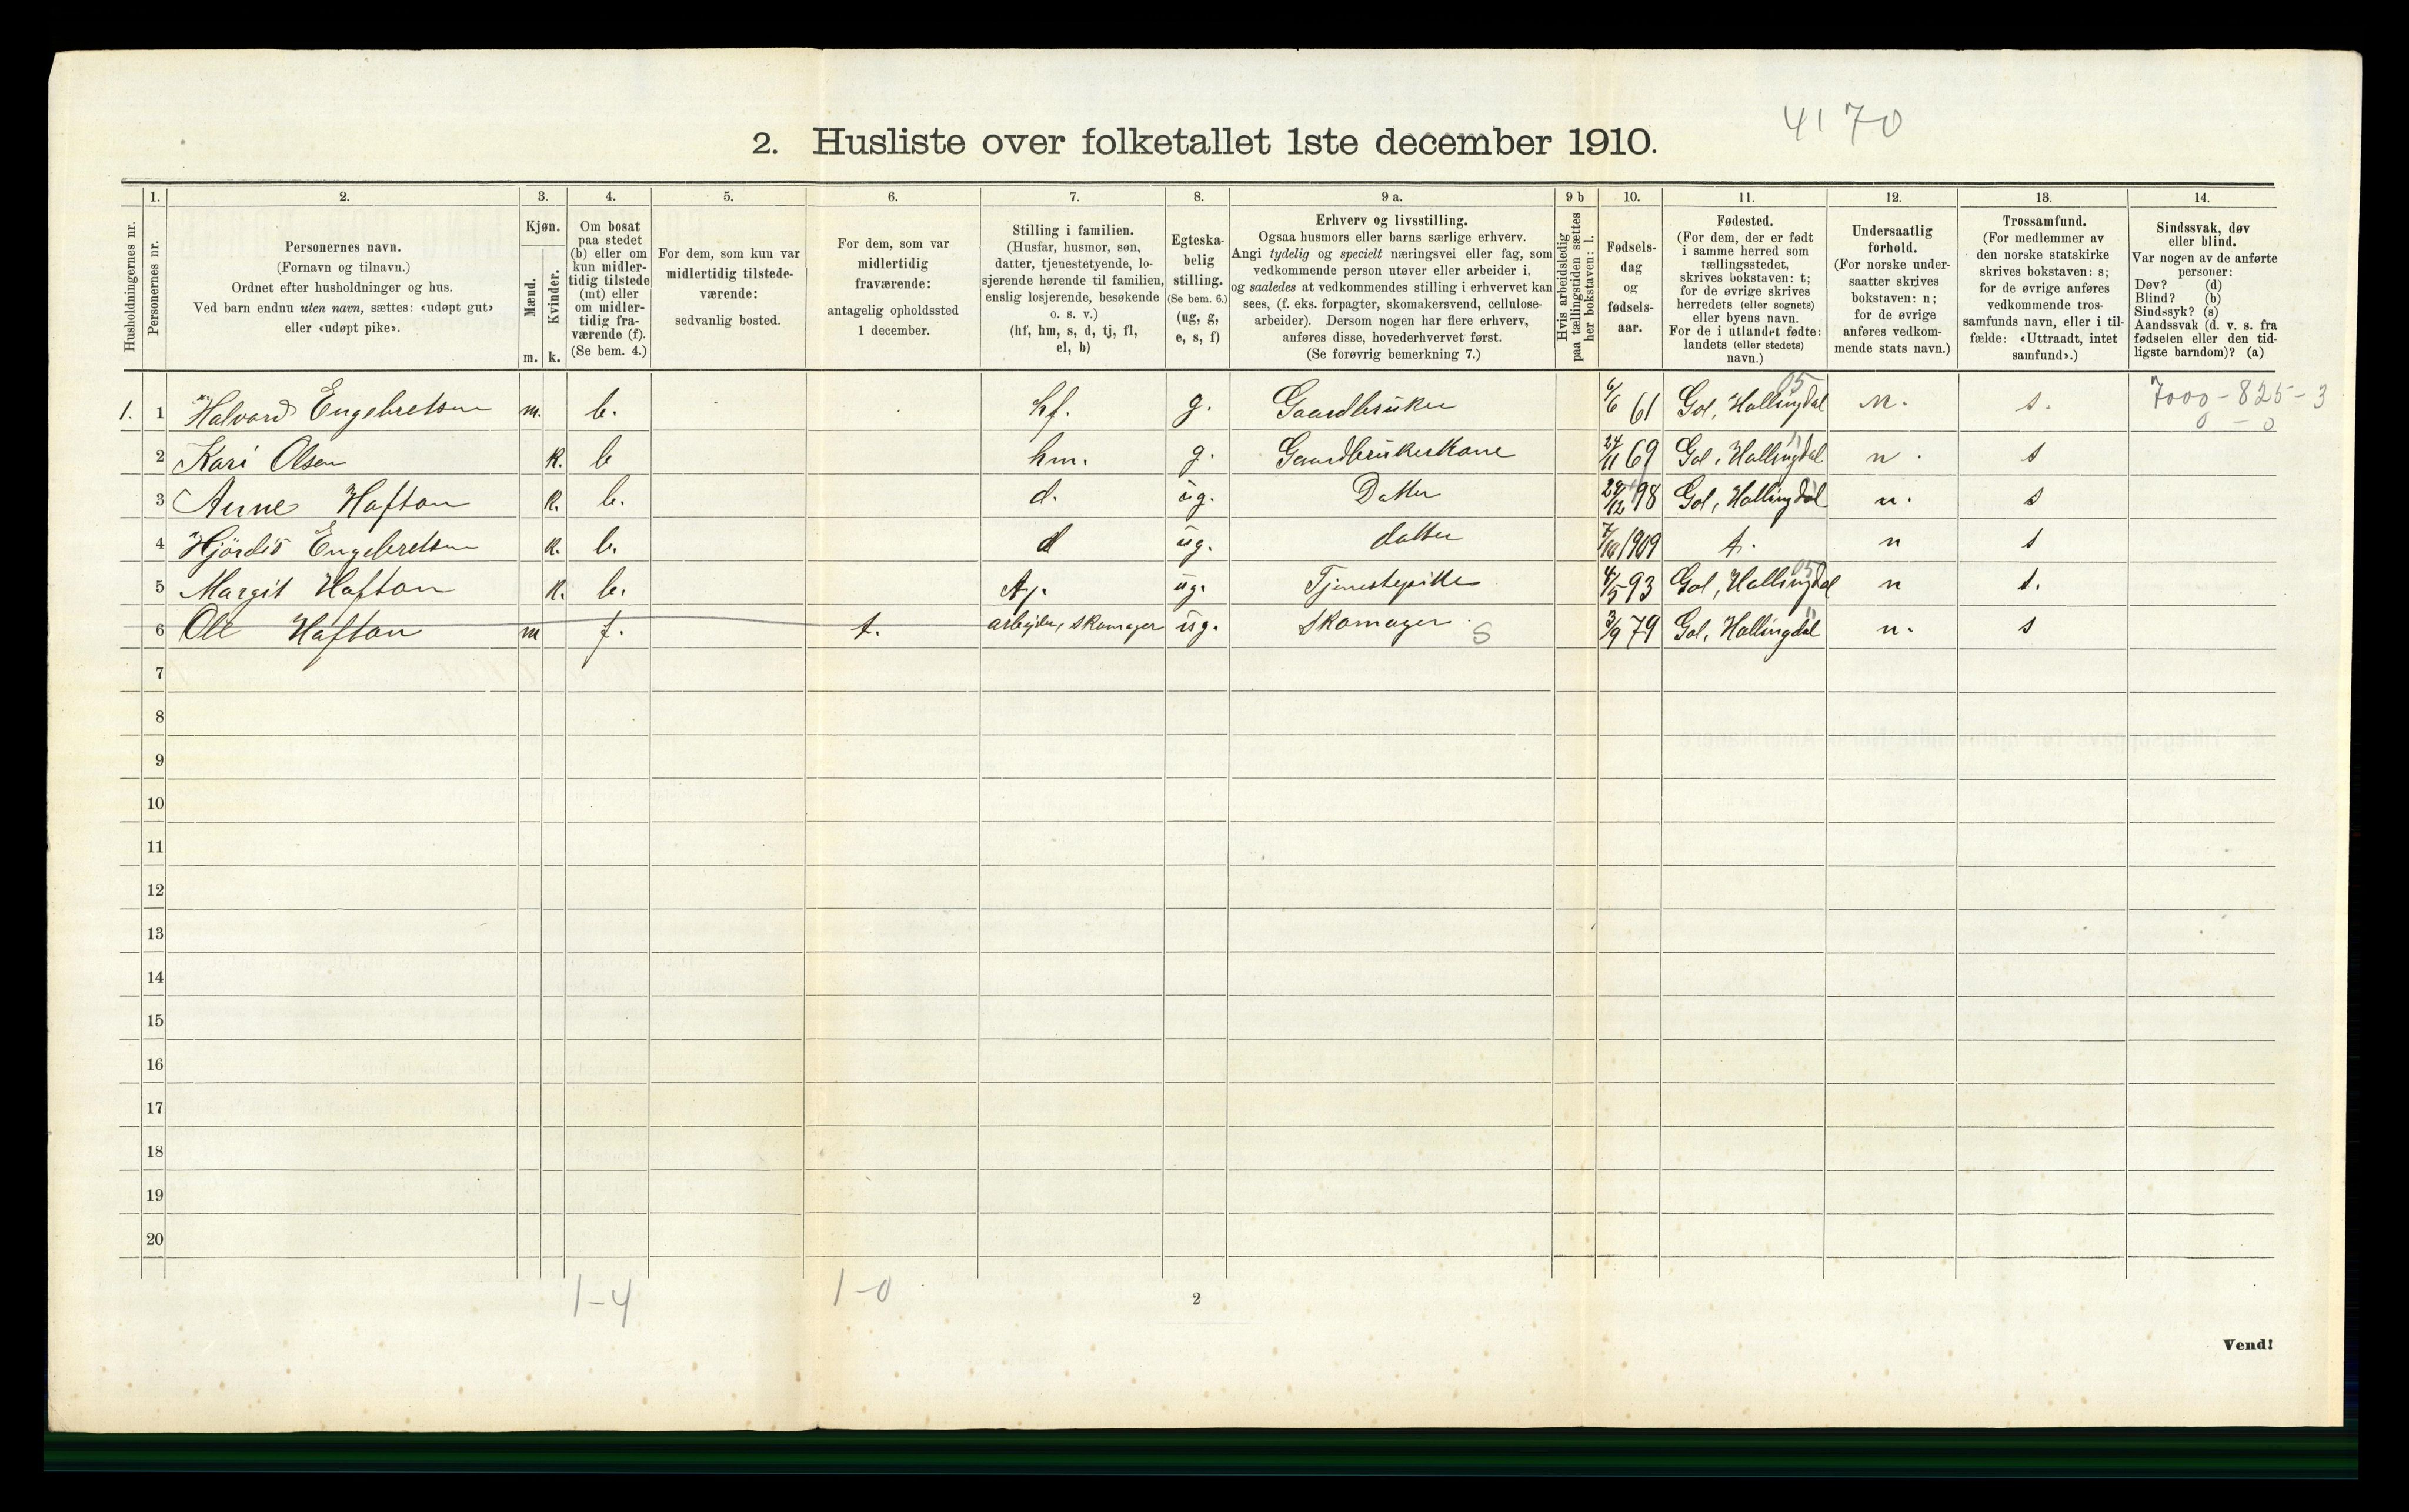 4170
2. Husliste over folketallet 1ste december 1910.
Husholdningernes nr.
1.
Personernes nr.
2.
Personernes navn.
(Fornavn og tilnavn.)
Ordnet efter husholdninger og hus.
Ved barn endnu uten navn, sættes: «udøpt gut»
eller «udøpt pike».
3.
Kjøn.
Mænd.
Kvinder.
m. k.
4.
Om bosat
paa stedet
(b) eller om
kun midler-
tidig tilstede
(mt) eller
om midler-
tidig fra-
værende (f).
(Se bem. 4.)
5.
For dem, som kun var
midlertidig tilstede-
værende:
sedvanlig bosted.
6.
For dem, som var
midlertidig
fraværende:
antagelig opholdssted
1 december.
7.
Stilling i familien.
(Husfar, husmor, søn,
datter, tjenestetyende, lo-
sjerende hørende til familien,
enslig losjerende, besøkende
o. s. v.)
(hf, hm, s, d, tj, fl,
el, b)
8.
Egteska-
belig
stilling.
(Se bem. 6.)
(ug, g,
e, s, f)
9 a.
Erhverv og livsstilling.
Ogsaa husmors eller barns særlige erhverv.
Angi tydelig og specielt næringsvei eller fag, som
vedkommende person utøver eller arbeider i,
og saaledes at vedkommendes stilling i erhvervet kan
sees, (f. eks. forpagter, skomakersvend, cellulose-
arbeider). Dersom nogen har flere erhverv,
anføres disse, hovederhvervet først.
(Se forøvrig bemerkning 7.)
9 b
Hvis arbeidsledig
paa tællingstiden sættes
her bokstaven: l.
10.
Fødsels-
dag
og
fødsels-
aar.
11.
Fødested.
(For dem, der er født
i samme herred som
tællingsstedet,
skrives bokstaven: t;
for de øvrige skrives
herredets (eller sognets)
eller byens navn.
For de i utlandet fødte:
landets (eller stedets)
navn.)
12.
Undersaatlig
forhold.
(For norske under-
saatter skrives
bokstaven: n;
for de øvrige
anføres vedkom-
mende stats navn.)
13.
Trossamfund.
(For medlemmer av
den norske statskirke
skrives bokstaven: s;
for de øvrige anføres
vedkommende tros-
samfunds navn, eller i til-
fælde: «Uttraadt, intet
samfund».)
14.
Sindssvak, døv
eller blind.
Var nogen av de anførte
personer:
Døv? (d)
Blind? (b)
Sindssyk? (s)
Aandssvak (d. v. s. fra
fødselen eller den tid-
ligste barndom)? (a)
1. 1 Halvard Engebretsen m. b. hf. g. Gaardbruker 6/6 61 Gol, Hallingdal 05 n. s. 7000-825-3
0 - 0
2 Kari Olsen k. b hm. g. Gaardbrukerkone 24/11 69 Gol, Hallingdal n. s
3 Anne Hafton k. b. d. ug. Datter 29/12 98 Gol, Hallingdal n. s
4 Hjördis Engebretsen k. b. d ug. datter 7/10 1909 t. n s
5 Margit Hafton k. b. tj. ug. Tjenestepike 4/5 93 Gol, Hallingdal 05 n s.
6 Ole Hafton m f. t. arbeyder, skomager ug. Skomager S 3/9 79 Gol, Hallingdal n. s
7
8
9
10
11
12
13
14
15
16
17
18
19
20
1-4 1-0
2
Vend!